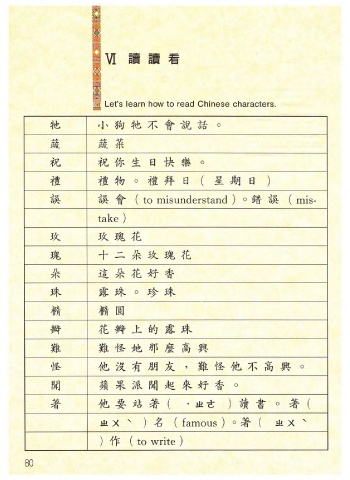 VI 讀讀看
Let's learn how to read Chinese characters.
牠 小狗牠不會說話。
蔬 蔬菜
祝 祝你生日快樂。
禮 禮物。禮拜日(星期日)
誤 誤會(to misunderstand)。錯誤(mis-
take)
玫 玫瑰花
瑰 十二朵玫瑰花
朵 這朵花好香
珠 露珠。珍珠
橢 橢圓
瓣 花瓣上的露珠
難 難怪她那麼高興
怪 他沒有朋友,難怪他不高興。
聞 蘋果派聞起來好香。
著 他要站著(˙ㄓㄜ)讀書。著(
ㄓㄨˋ)名(famous)。著(ㄓㄨˋ
)作(to write)
80